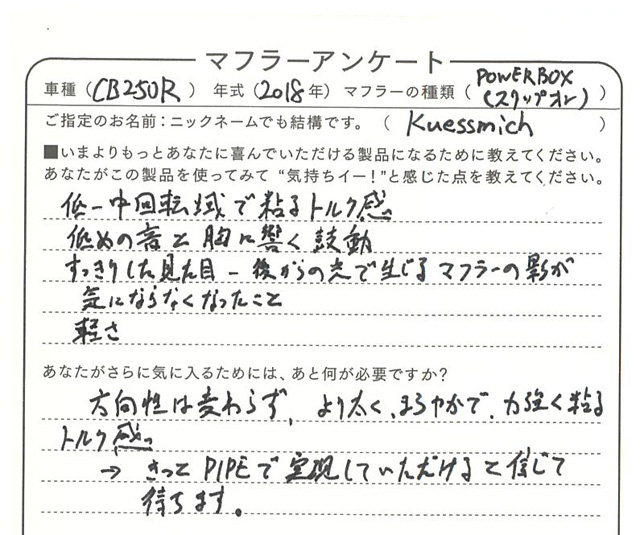 マフラーアンケート
車種（CB250R） 年式（2018年） マフラーの種類（POWERBOX（スリップオン））
ご指定のお名前：ニックネームでも結構です。（Kuessmich）
■いまよりもっとあなたに喜んでいただける製品になるために教えてください。
あなたがこの製品を使ってみて“気持ちイー！”と感じた点を教えてください。
低ー中回転域で粘るトルク感
低めの音と胸に響く鼓動
すっきりした見た目ー後からの光で生じるマフラーの影が
気にならなくなったこと
軽さ
あなたがさらに気に入るためには、あと何が必要ですか？
方向性は変わらず、より太く、まろやかで、力強く粘る
トルク感。
→ きっとPIPEで実現していただけると信じて
待ちます。